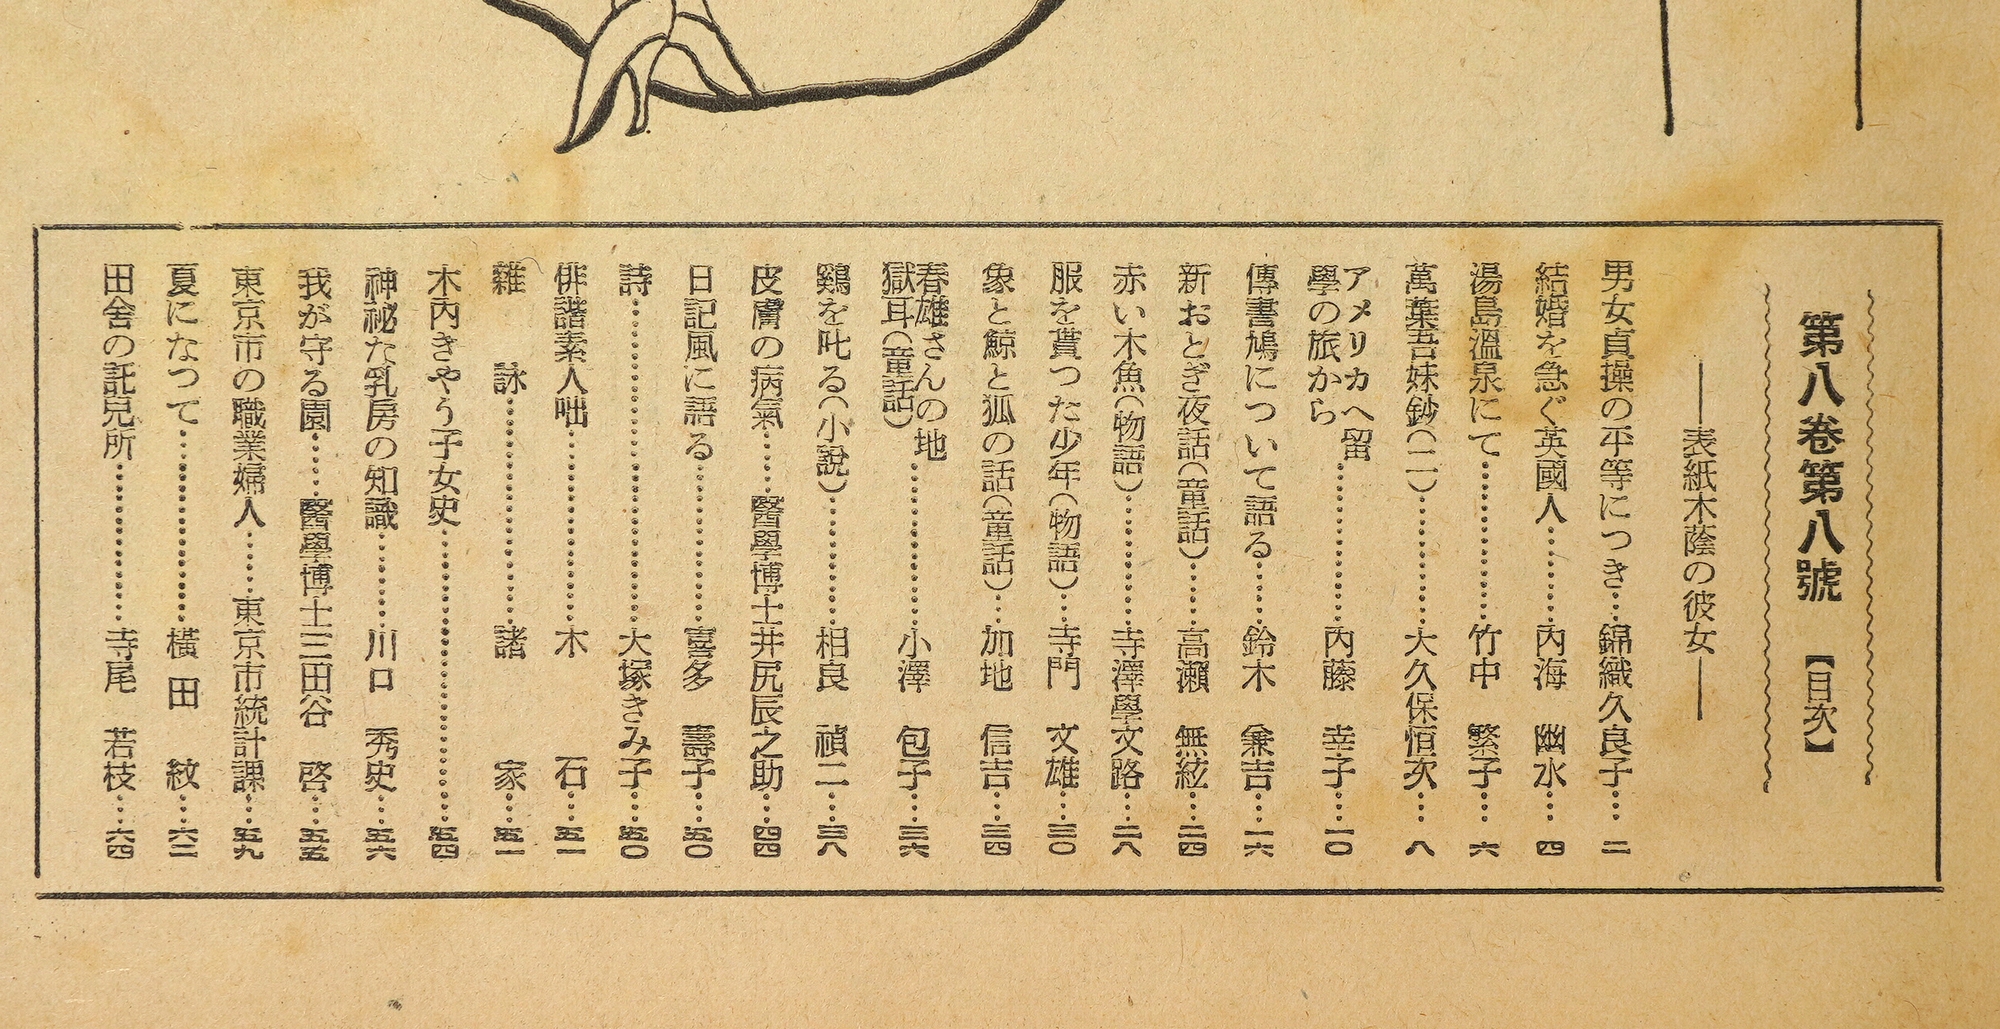 第八卷第八號 【目次】
――表紙木蔭の彼女――
男女貞操の平等につき…錦織久良子…二
結婚を急ぐ英國人………內海 幽水…四
湯島溫泉にて……………竹中 繁子…六
萬葉吾妹鈔(二)………大久保恒次…八
アメリカへ留學の旅から……………內藤 幸子…一〇
傳書鳩について語る……鈴木 兼吉…一六
新おとぎ夜話(童話)……高瀨 無絃…二四
赤い木魚(物語)………寺澤學文路…二八
服を貰つた少年(物語)…寺門 文雄…三〇
象と鯨と狐の話(童話)…加地 信吉…三四
春雄さんの地獄耳(童話)……………小澤 包子…三六
鷄を叱る(小說)………相良 禎二…三八
皮膚の病氣……醫學博士井尻辰之助…四四
日記風に語る……………喜多 壽子…五〇
詩…………………………大塚きみ子…五〇
俳諧素人咄………………木 石…五一
雜 詠……………………諸 家…五一
木內きやう子女史……………………五四
神祕な乳房の知識………川口 秀史…五六
我が守る園……醫學博士三田谷 啓…五五
東京市の職業婦人……東京市統計課…五九
夏になつて………………橫田 紋…六二
田舍の託兒所……………寺尾 若枝…六四